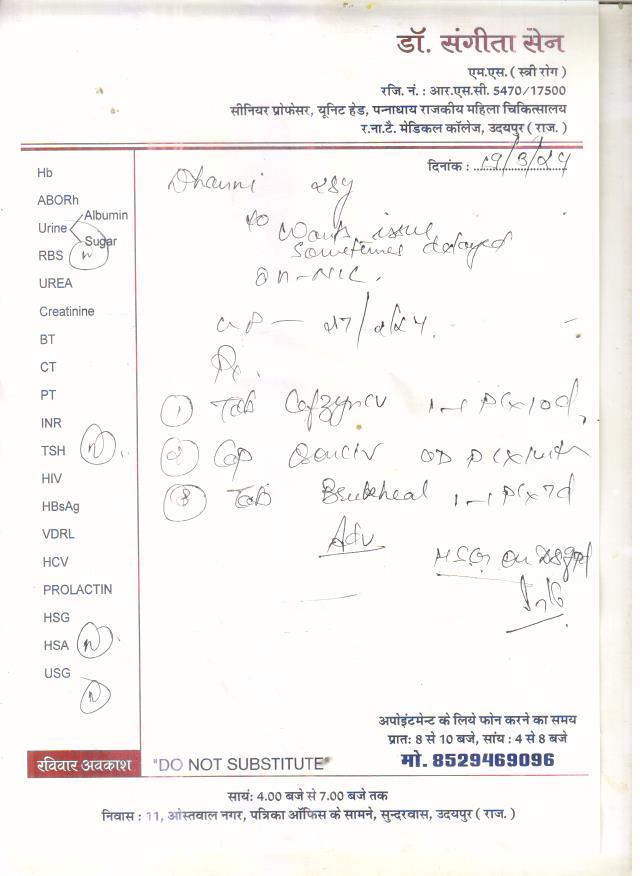 डॉ. संगीता सेन
एम.एस. ( स्त्री रोग )
रजि. नं. : आर.एस.सी. 5470/17500
सीनियर प्रोफेसर, यूनिट हेड, पन्नाधाय राजकीय महिला चिकित्सालय
र.ना.टै. मेडिकल कॉलेज, उदयपुर ( राज. )
दिनांक : 19/3/24
Hb
ABORh
Urine Albumin
Sugar
RBS N
UREA
Creatinine
BT
CT
PT
INR
TSH N
HIV
HBsAg
VDRL
HCV
PROLACTIN
HSG
HSA N
USG N
28y
Wants issue
Sometimes delayed
27/2/24.
Rx
1 Tab 1-1 PC x 10d
2 Cap OD PC x
3 Tab 1-1 PC x 7d
Adv
HSG On
अपोइंटमेन्ट के लिये फोन करने का समय
प्रात: 8 से 10 बजे, सांय : 4 से 8 बजे
मो. 8529469096
रविवार अवकाश
"DO NOT SUBSTITUTE"
सायं: 4.00 बजे से 7.00 बजे तक
निवास : 11, ओस्तवाल नगर, पत्रिका ऑफिस के सामने, सुन्दरवास, उदयपुर ( राज. )